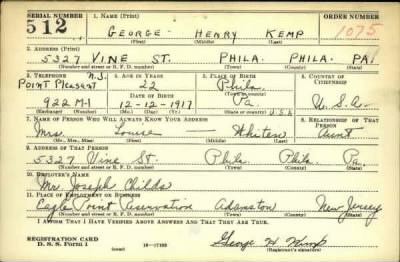 SERIAL NUMBER 1. NAME (Print) ORDER NUMBER
512 GEORGE HENRY KEMP 1075
(First) (Middle) (Last)
2. ADDRESS (Print)
5327 VINE ST. PHILA. PHILA. PA.
(Number and street or R. F. D. number) (Town) (County) (State)
3. TELEPHONE 4. AGE IN YEARS 5. PLACE OF BIRTH 6. COUNTRY OF CITIZENSHIP
N.J.
Point Pleasent 22 Phila.
DATE OF BIRTH (Town or county)
922 M-1 12-12-1917 Pa. U.S.A.
(Exchange) (Number) (Mo.) (Day) (Yr.) (State or country)
7. NAME OF PERSON WHO WILL ALWAYS KNOW YOUR ADDRESS 8. RELATIONSHIP OF THAT PERSON
Mrs. Louise — Whiten Aunt
(Mr., Mrs., Miss) (First) (Middle) (Last)
9. ADDRESS OF THAT PERSON
5327 Vine St. Phila. Phila. Pa.
(Number and street or R. F. D. number) (Town) (County) (State)
10. EMPLOYER'S NAME
Mr. Joseph Childs
11. PLACE OF EMPLOYMENT OR BUSINESS
Eagle Point Reservation Adamston New Jersey
(Number and street or R. F. D. number) (Town) (County) (State)
I AFFIRM THAT I HAVE VERIFIED ABOVE ANSWERS AND THAT THEY ARE TRUE.
REGISTRATION CARD
D. S. S. Form 1 (over) 16—17105 George H Kemp
(Registrant's signature)